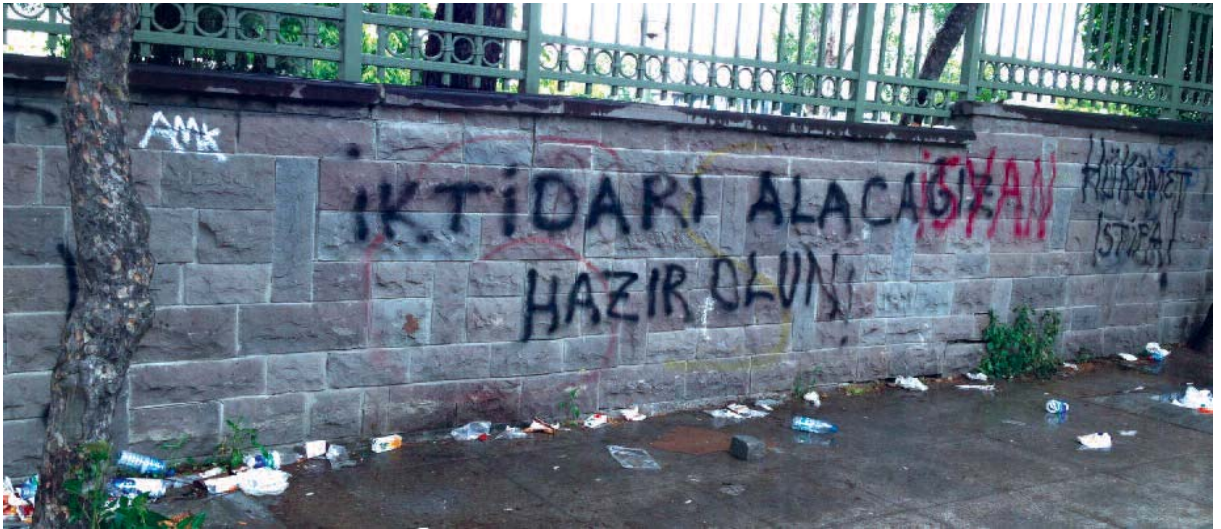 AMK
İKTİDARI ALACAĞIZ
HAZIR OLUN!
İSYAN
HÜKÜMET
İSTİFA!